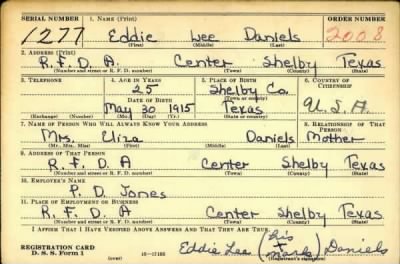 SERIAL NUMBER 1. NAME (Print) ORDER NUMBER
1277 Eddie Lee Daniels 2008
(First) (Middle) (Last)
2. ADDRESS (Print)
R. F. D. A. Center Shelby Texas
(Number and street or R. F. D. number) (Town) (County) (State)
3. TELEPHONE 4. AGE IN YEARS 5. PLACE OF BIRTH 6. COUNTRY OF CITIZENSHIP
25 Shelby Co.
DATE OF BIRTH (Town or county)
May 30 1915 Texas U.S.A.
(Exchange) (Number) (Mo.) (Day) (Yr.) (State or country)
7. NAME OF PERSON WHO WILL ALWAYS KNOW YOUR ADDRESS 8. RELATIONSHIP OF THAT PERSON
Mrs. Eliza Daniels Mother
(Mr., Mrs., Miss) (First) (Middle) (Last)
9. ADDRESS OF THAT PERSON
R. F. D A Center Shelby Texas
(Number and street or R. F. D. number) (Town) (County) (State)
10. EMPLOYER'S NAME
P. D. Jones
11. PLACE OF EMPLOYMENT OR BUSINESS
R. F. D. A Center Shelby Texas
(Number and street or R. F. D. number) (Town) (County) (State)
I AFFIRM THAT I HAVE VERIFIED ABOVE ANSWERS AND THAT THEY ARE TRUE.
REGISTRATION CARD
D. S. S. Form 1 (over) Eddie Lee (his X mark) Daniels